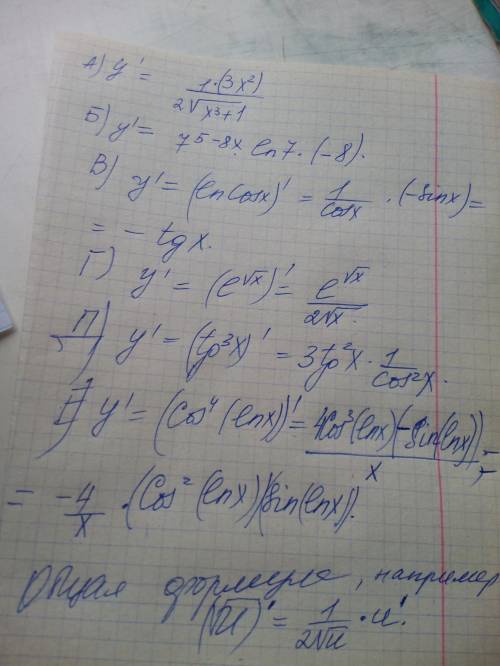 А) y' = 1·(3x²) / 2√(x³+1)
Б) y' = 7^(5-8x) · ln7 · (-8).
В) y' = (ln cosx)' = 1/cosx · (-sinx) =
= - tg x.
Г) y' = (e^√x)' = e^√x / 2√x.
Д) y' = (tg³x)' = 3tg²x · 1/cos²x.
Е) y' = (cos⁴(lnx))' = 4cos³(lnx)(-sin(lnx)) / x =
= -4/x · (cos²(lnx))(sin(lnx)).
Общая формула, например
(√u)' = 1/2√u · u'.